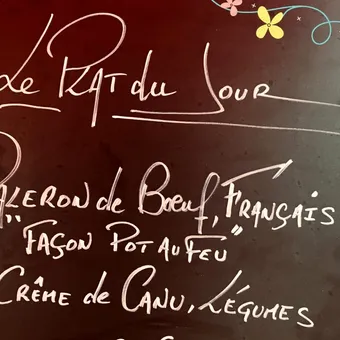 Le Plat du Jour
Paleron de Bœuf, Français
"Façon Pot au Feu"
Crème de Canu, Légumes